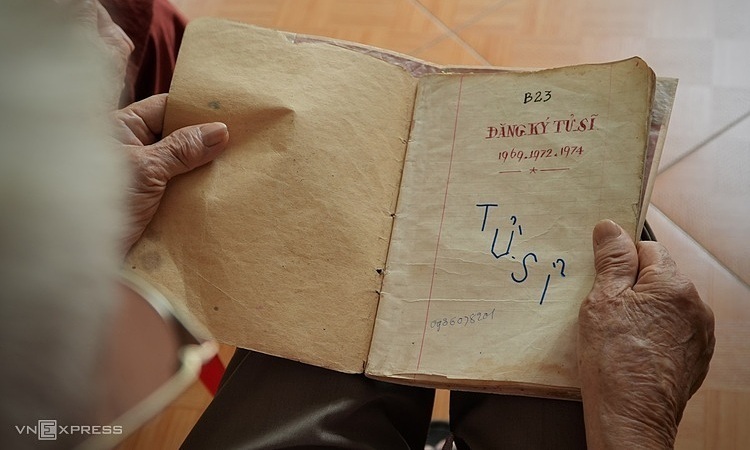 B23
ĐĂNG KÝ TỬ SĨ
1969.1972.1974
TỬ SĨ
VNEXPRESS